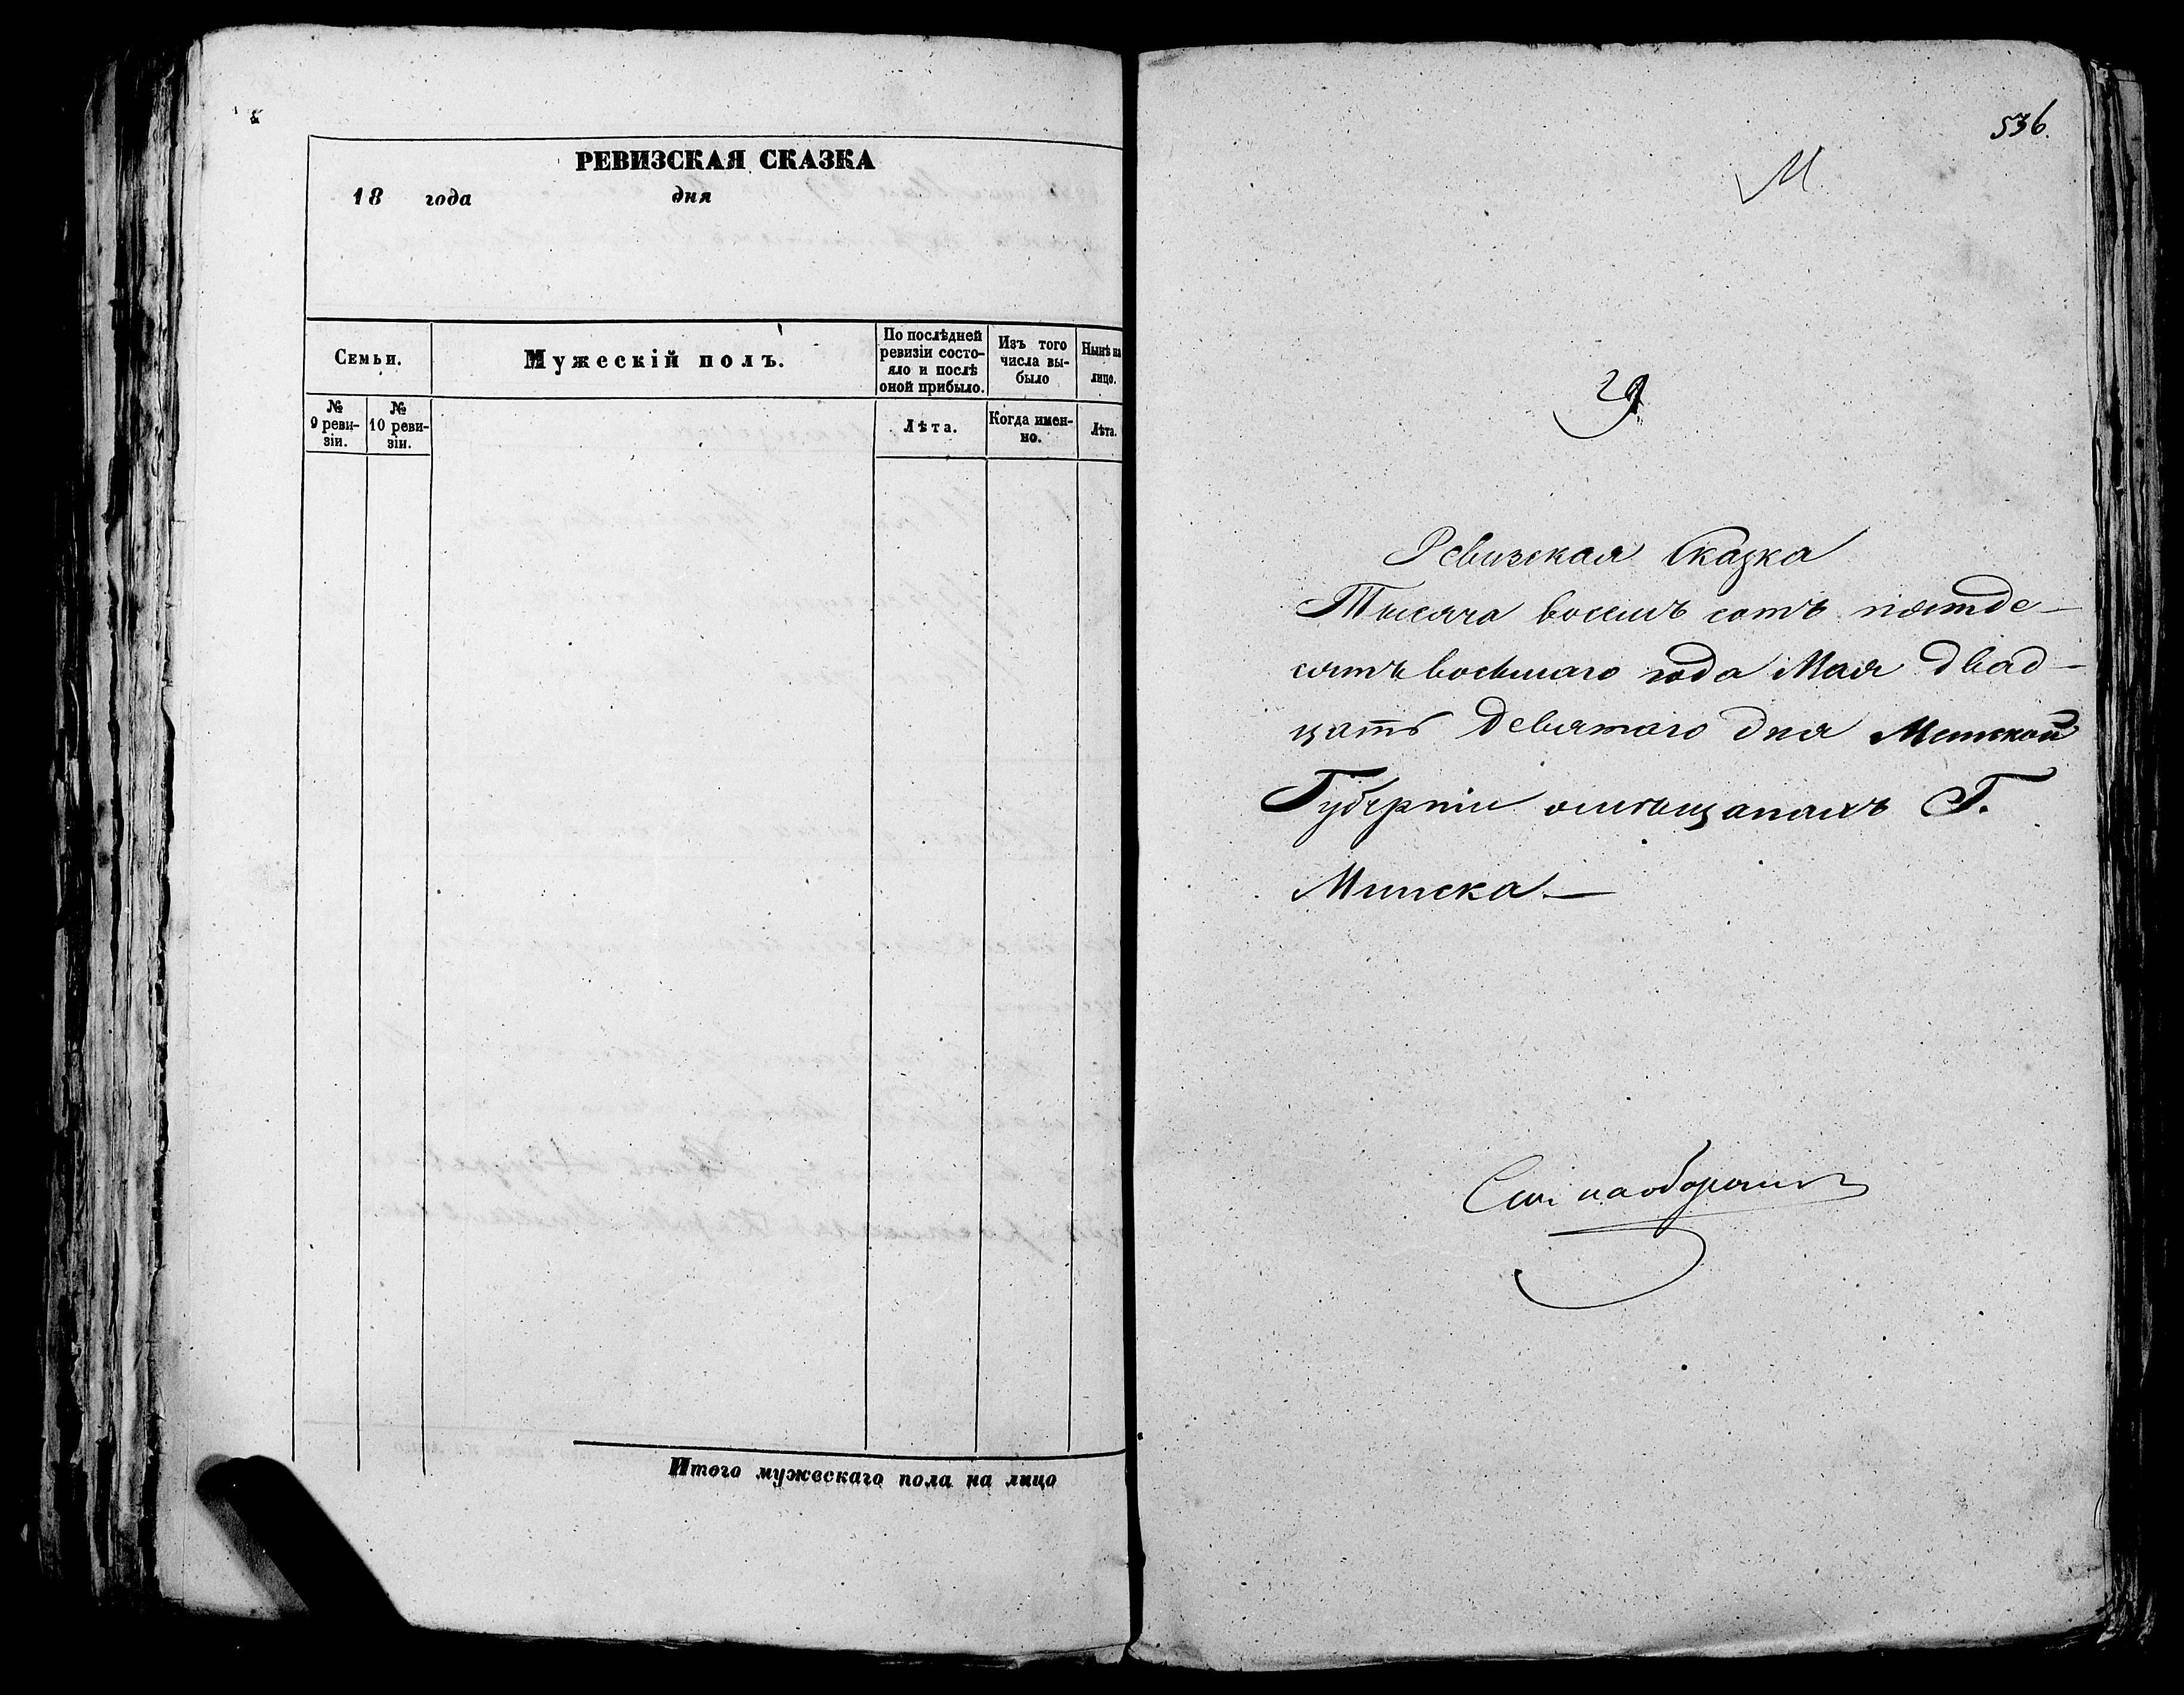 РЕВИЗСКАЯ СКАЗКА
18 года дня
Семьи.
Мужескій полъ.
По послѣдней
ревизіи состо-
яло и послѣ
оной прибыло.
Изъ того
числа вы-
было
Нынѣ на
лицо.
№
9 реви-
зіи.
№
10 реви-
зіи.
Лѣта.
Когда имен-
но.
Лѣта.
Итого мужескаго пола на лицо
536.
М
29
Ревизская Сказка
Тысяча восемь сотъ пятде-
сятъ восьмаго года Мая двад-
цать девятаго дня Минской
Губерніи омѣщанахъ Г.
Минска —
наоборотѣ